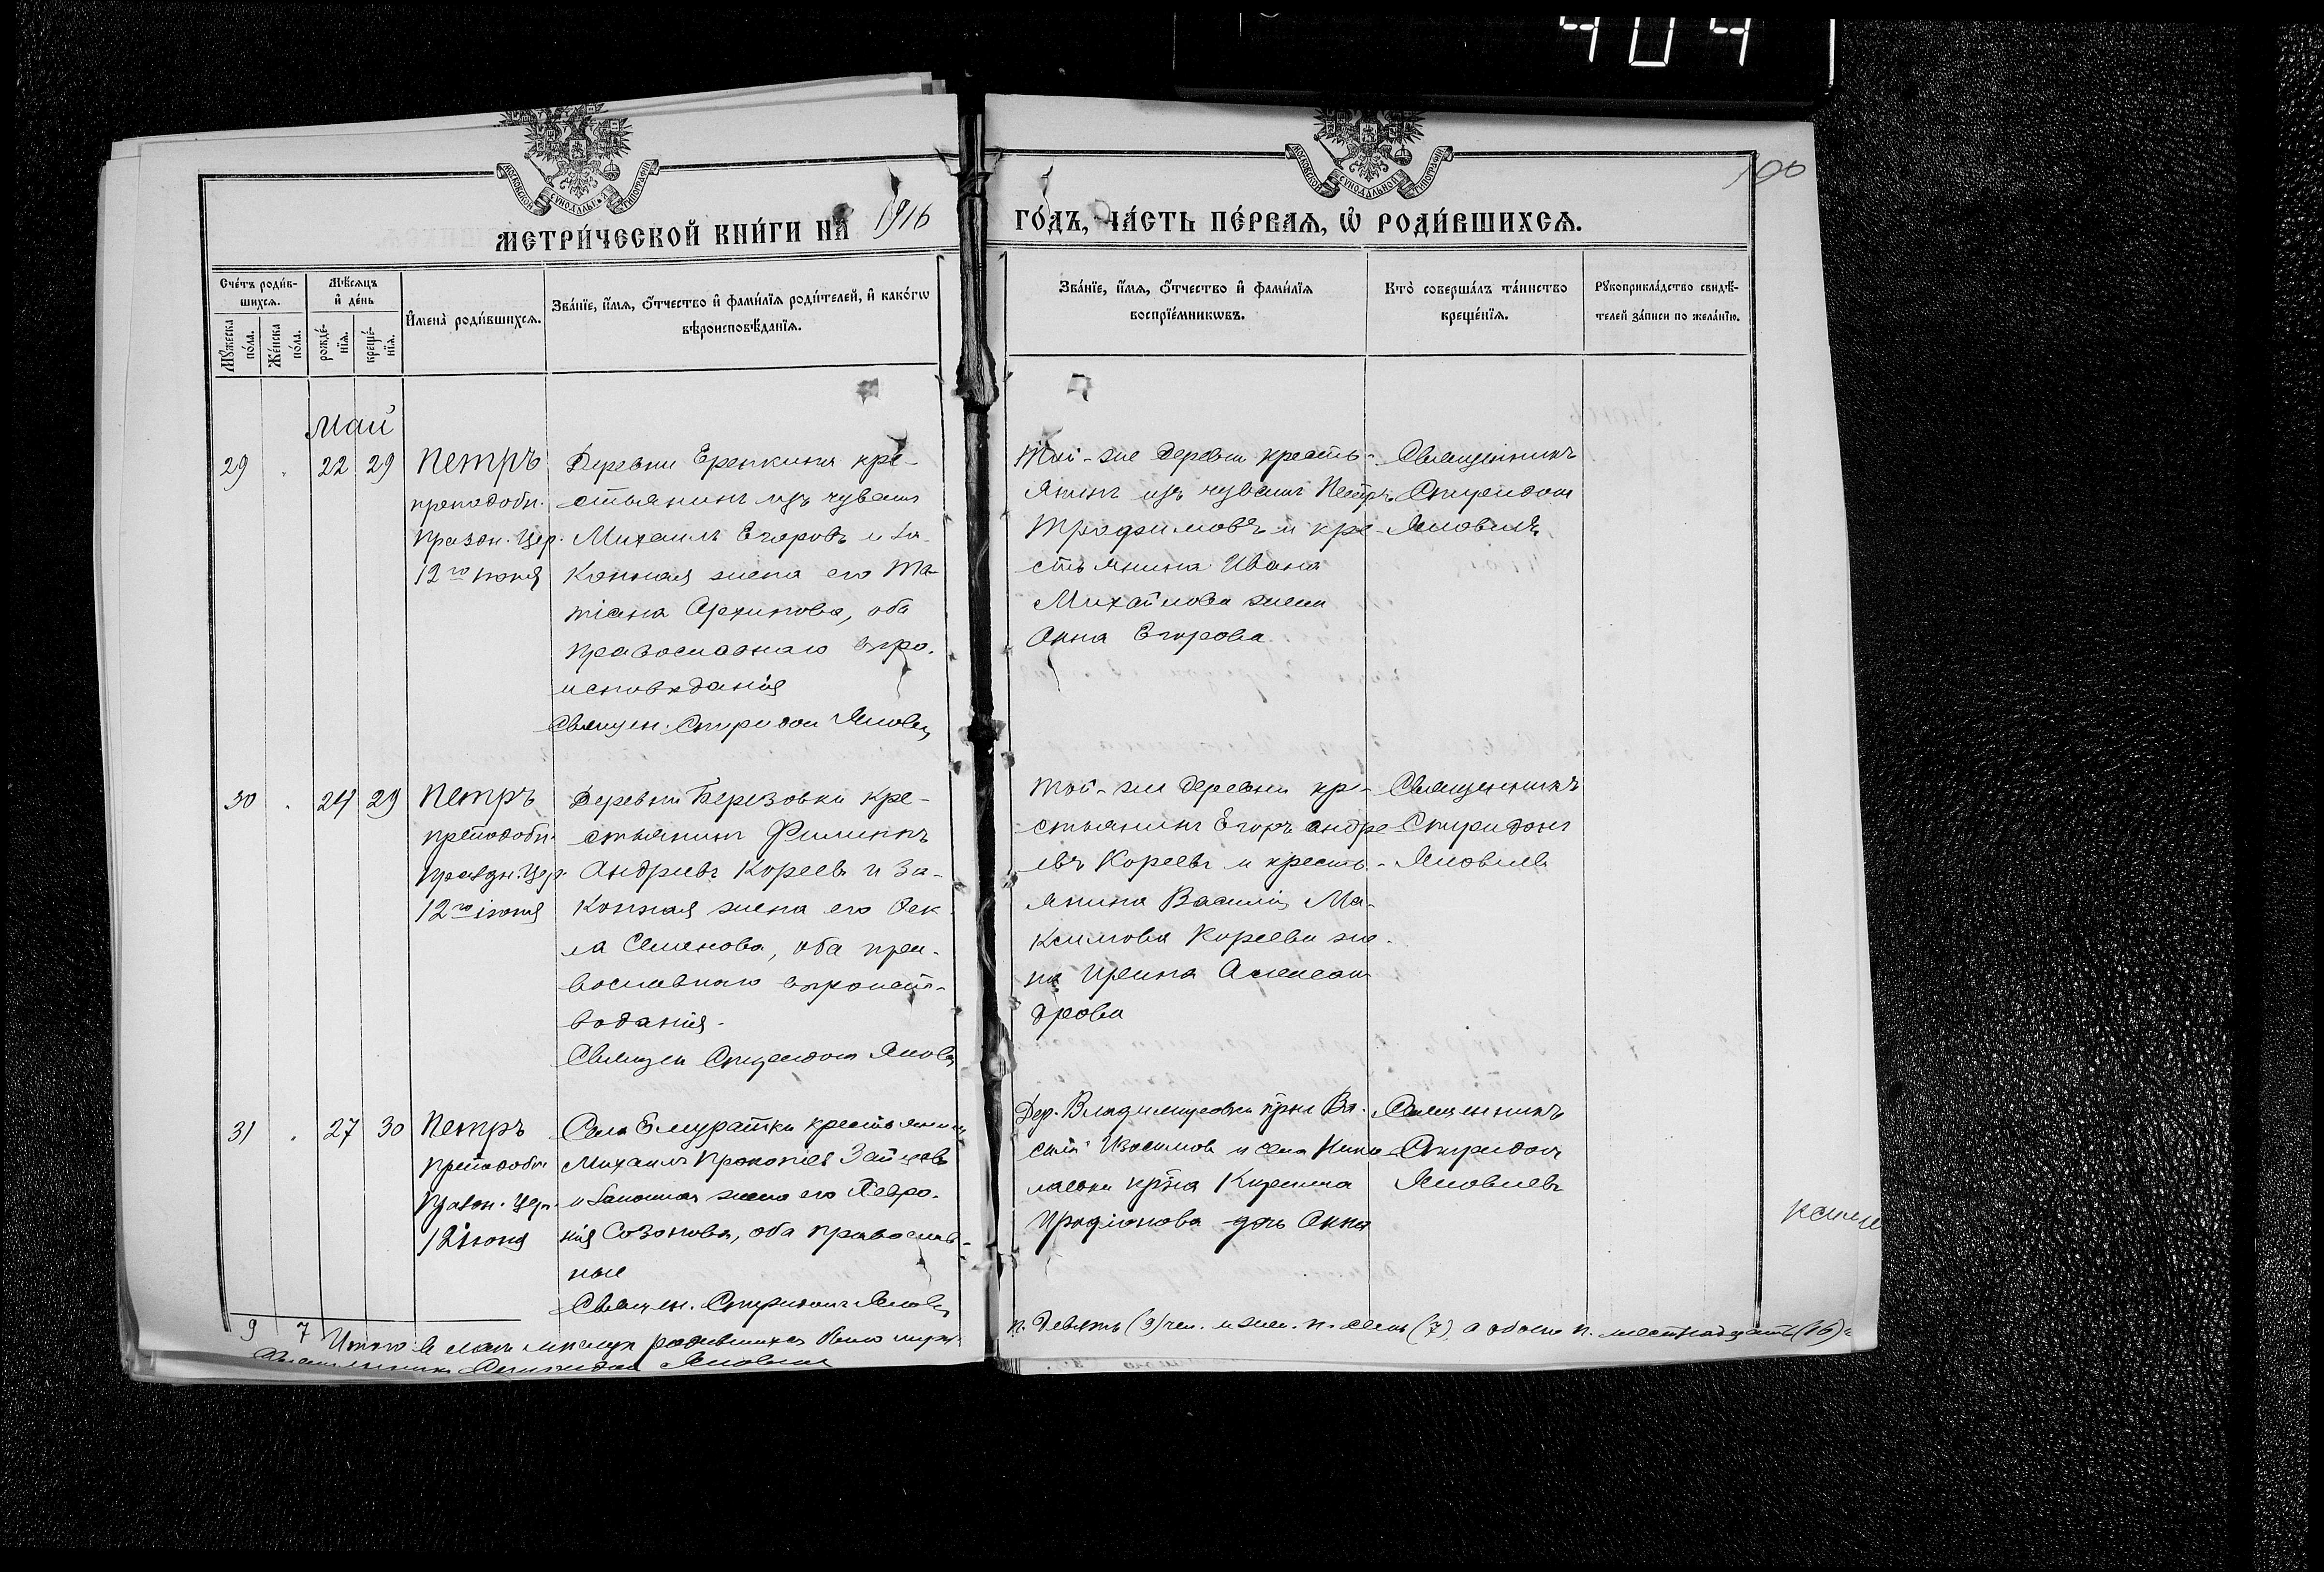 404
МОСКОВСКОЙ СѴНОДАЛЬНОЙ ТИПОГРАФІИ
МОСКОВСКОЙ СѴНОДАЛЬНОЙ ТИПОГРАФІИ
190
МЕТРИ́ЧЕСКОЙ КНИ́ГИ НА 1916
ГО́ДЪ, ЧА́СТЬ ПЕ́РВАЯ, Ѡ҆ РОДИ́ВШИХСѦ.
Сче́тъ роди́в-
шихсѧ.
Мꙋ́жеска по́ла.
Же́нска по́ла.
Мѣ́сѧцъ
и҆ де́нь
рожде́-
нїѧ.
креще́-
нїѧ.
И҆мена̀ роди́вшихсѧ.
Зва́нїе, и҆́мѧ, ѻ҆́тчество и҆ фами́лїѧ роди́телей, и҆ како́гѡ
вѣроисповѣ́данїѧ.
Зва́нїе, и҆́мѧ, ѻ҆́тчество и҆ фами́лїѧ
воспрїе́мникѡвъ.
Кто̀ соверша́лъ та́инство
креще́нїѧ.
Рꙋкоприкла́дство свидѣ́-
телей за́писи по жела́нїю.
Май
29 . 22 29
Петръ
преподобн.
Праздн. Цер.
12го іюня
Деревни Еренкина кре-
стьянинъ изъ чувашъ
Михаилъ Егоровъ и за-
конная жена его Та-
тіана Архипова, оба
православнаго вѣро-
исповѣданія
Священ. Спиридон Яковл
Той-же деревни кресть-
янинъ изъ чувашъ Петръ
Трофимовъ и кре-
стьянина Ивана
Михайлова жена
Анна Егорова
Священникъ
Спиридон
Яковлевъ
30 . 24 29
Петръ
преподобн.
Праздн. Цер.
12го іюня
Деревни Березовки кре-
стьянинъ Филиппъ
Андреевъ Кореевъ и за-
конная жена его Фек-
ла Семенова, оба пра-
вославнаго вѣроиспо-
вѣданія.
Священ Спиридон Яковл
Той-же деревни кре-
стьянинъ Егоръ Андре-
евъ Кореевъ и кресть-
янина Василія Ма-
ксимова Кореева же-
на Ирина Алексан
дрова
Священникъ
Спиридонъ
Яковлевъ
31 . 27 30
Петръ
преподобн
Праздн. Цер.
12 іюня
Села Емуратки крестьянин
Михаилъ Прокопіев Зайцевъ
и законная жена его Февро-
нія Созонова, оба православ-
ные
Священ. Спиридонъ Яковл
Дер. Владимировки кр-нъ Ва-
силій Изосимов и села Нико-
лаевки кр-на Кирилла
Иродіонова дочь Анна
Священникъ
Спиридон
Яковлевъ
9 7 Итого в мае месяце родившихся было муж.
п. девять (9) чел. и жен. п. семь (7), а обоего п. шестнадцать (16)
Священникъ Спиридон Яковлев